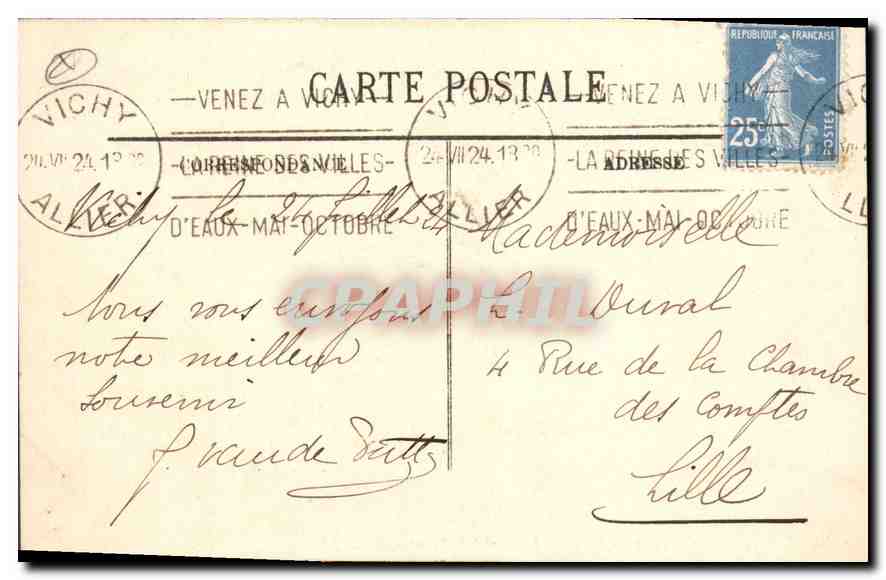 CARTE POSTALE
REPUBLIQUE FRANÇAISE
25c
POSTES
VICHY
24.VII 24.18
ALLIER
—VENEZ A VICHY—
-LA REINE DES VILLES-
D'EAUX-MAI-OCTOBRE
VICHY
24 VII 24.18
ALLIER
—VENEZ A VICHY—
-LA REINE DES VILLES-
D'EAUX-MAI-OCTOBRE
CORRESPONDANCE
ADRESSE
Vichy le 24 Juillet 24
Nous vous envoyons
notre meilleur
souvenir
Mademoiselle
L. Duval
4 Rue de la Chambre
des Comptes
Lille
CPAPHIL